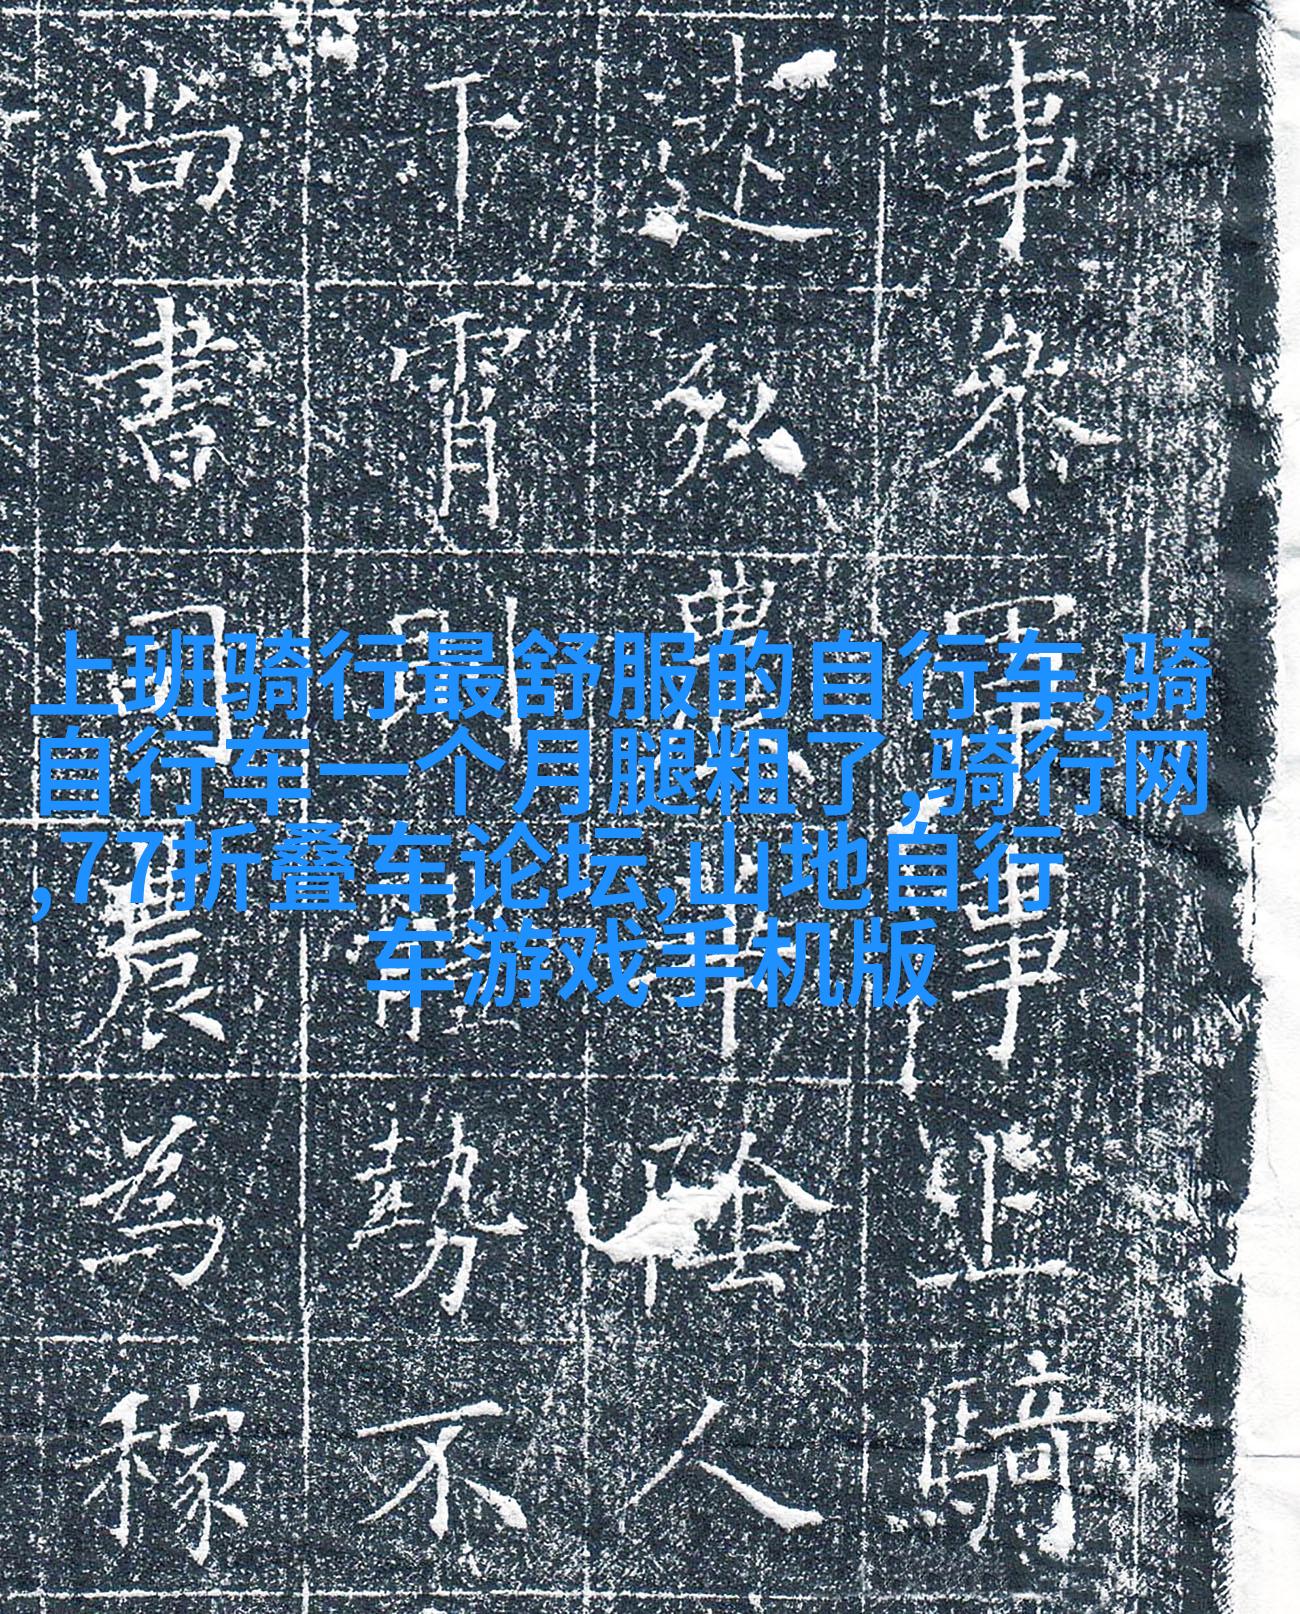 上班骑行最舒服的自行车,骑
自行车一个月腿粗了,骑行网
,77折叠车论坛,山地自行
车游戏手机版
事軍事騎
農陰人
下霄則體勢不
尚書司農為稼